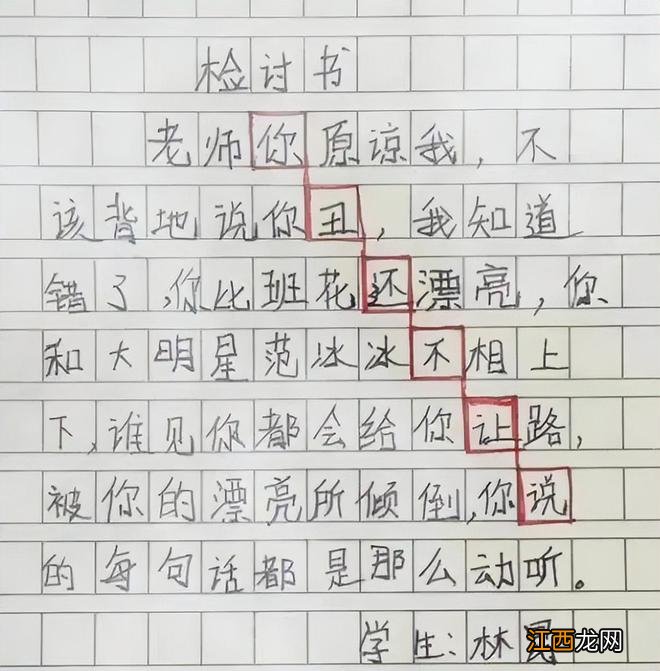 检讨书
老师你原谅我，不
该背地说你丑，我知道
错了，你比班花还漂亮，你
和大明星范冰冰不相上
下，谁见你都会给你让路，
被你的漂亮所倾倒，你说
的每句话都是那么动听。
学生：林
江西龙网